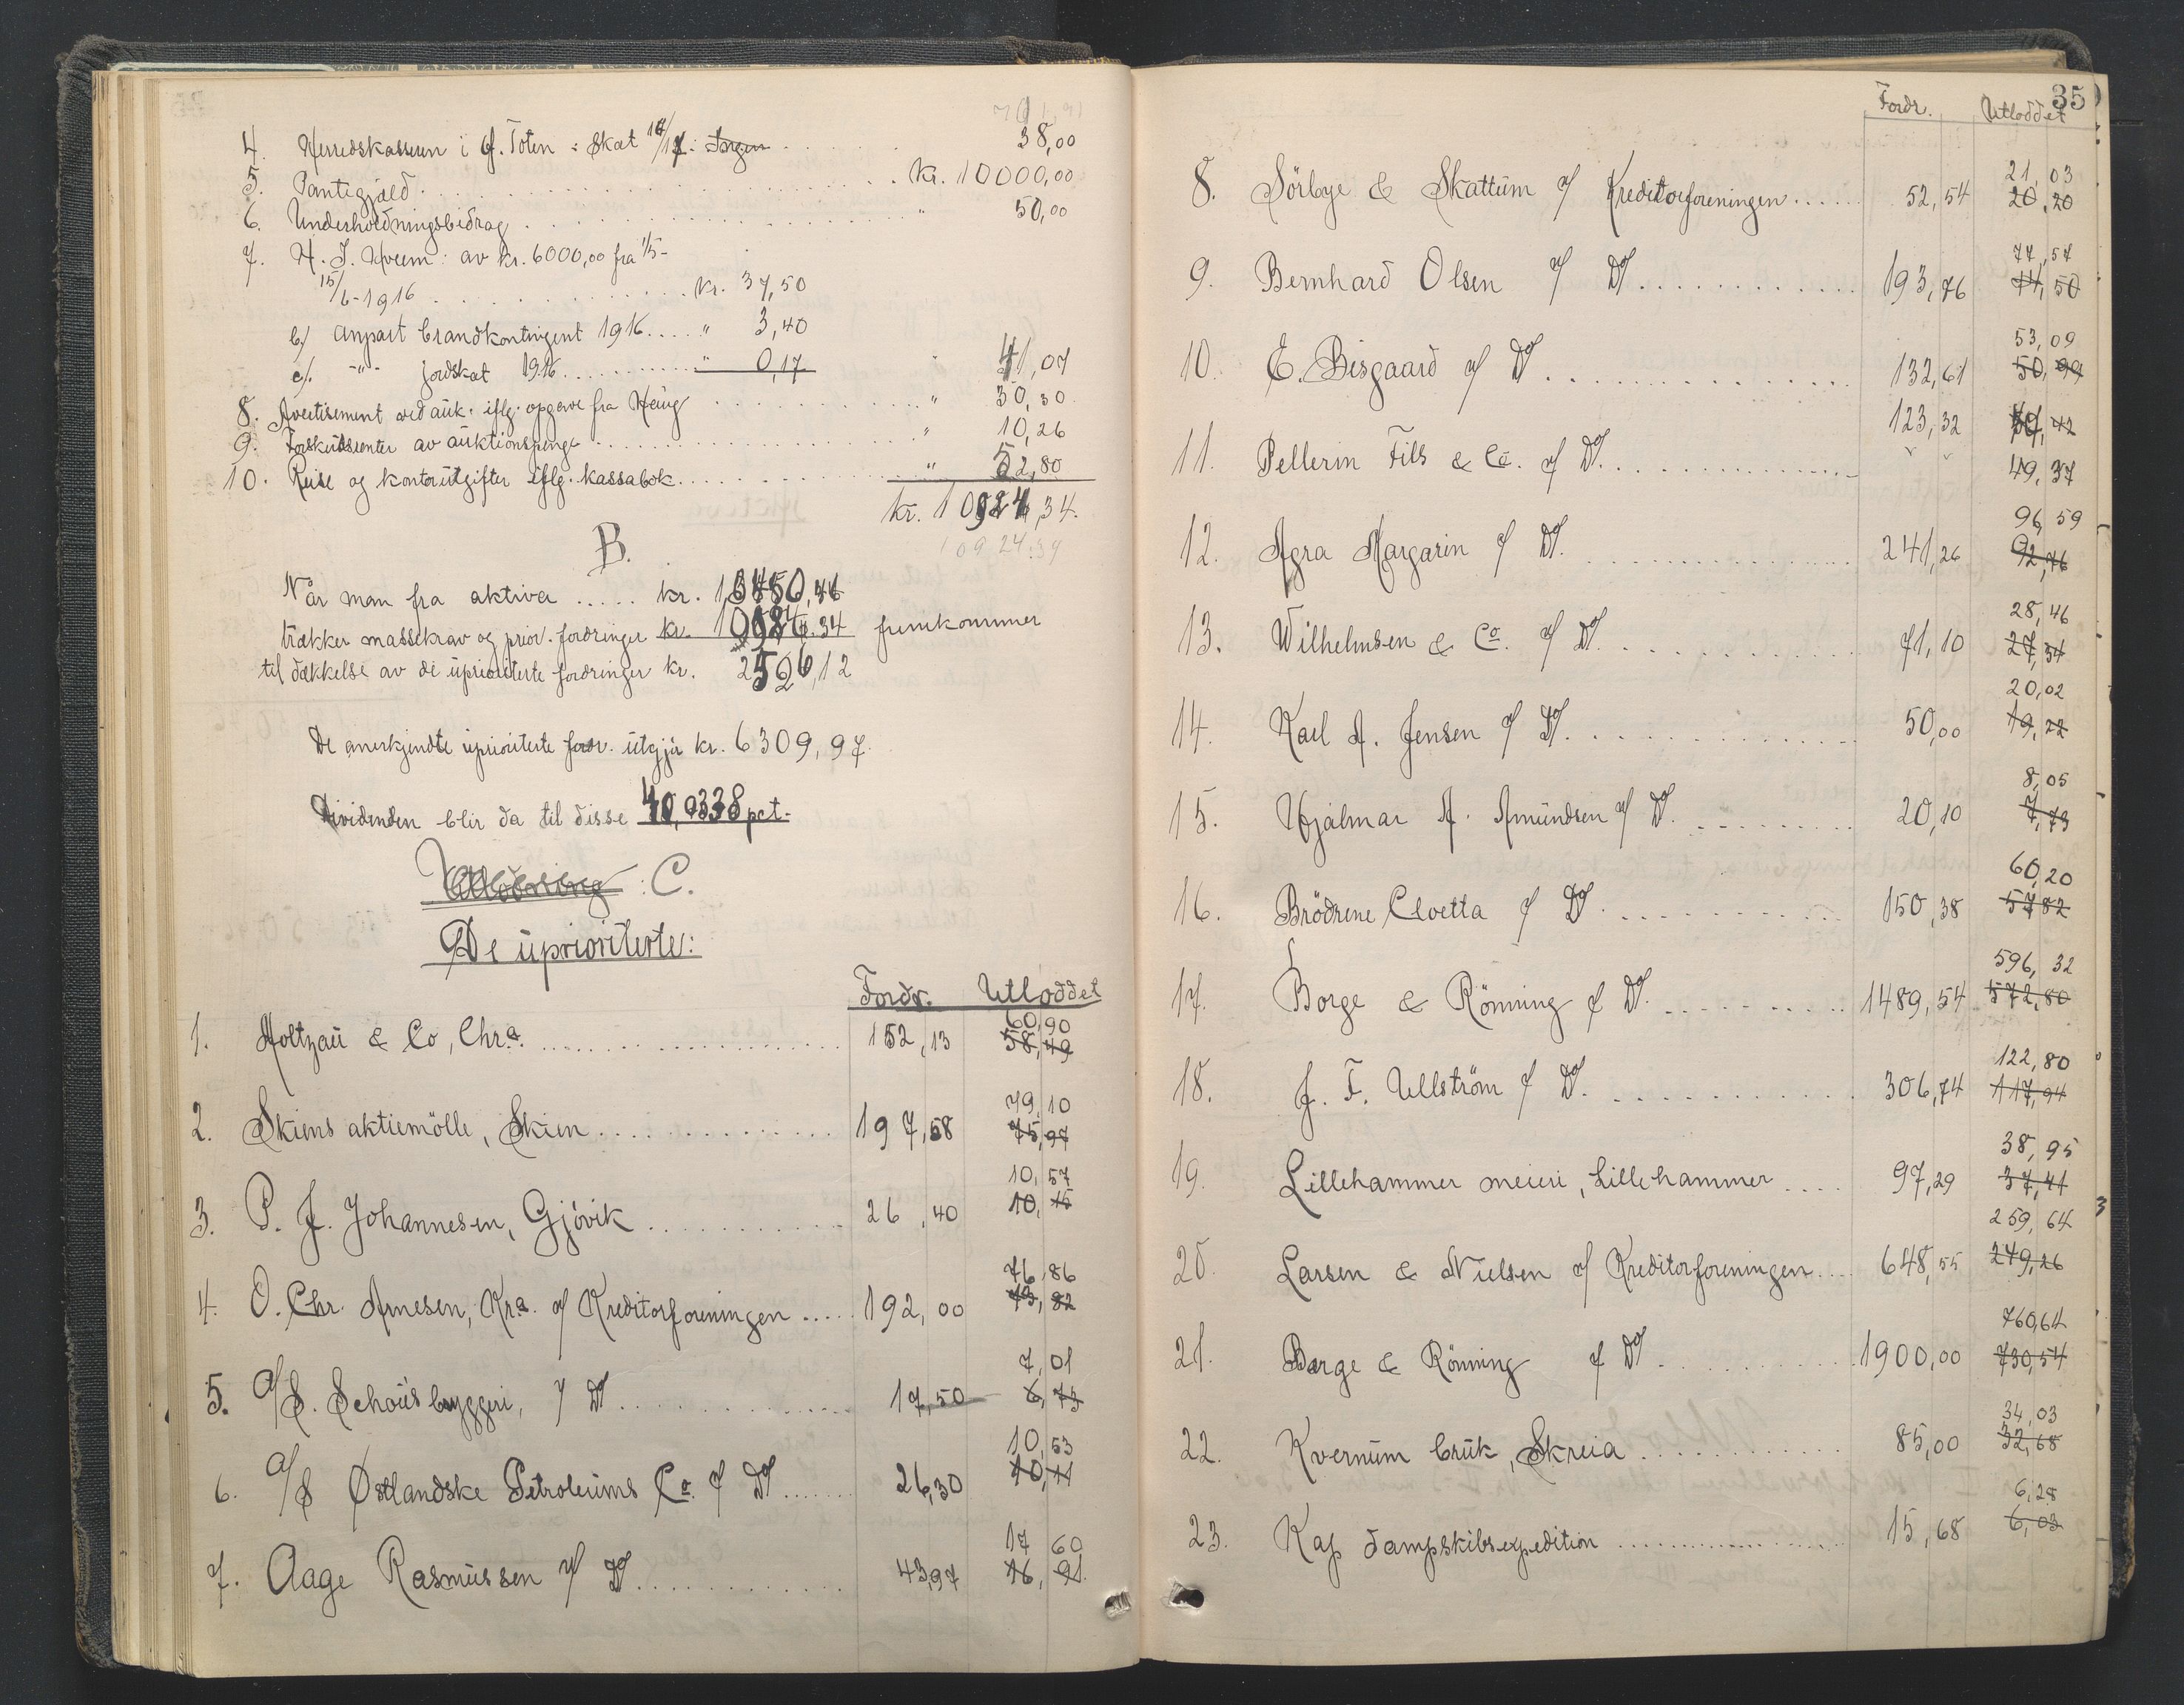 4. Herredskassen i Ø. Toten: Skat 16/17: Ingen 38,00
5. Pantegjæld kr. 10000,00
6. Underholdningsbidrag " 50,00
7. H. J. Kveem: av kr. 6000,00 fra 1/5-
15/6-1916 kr. 37,50
b/ Anpart brandkontingent 1916 " 3,40
c/ -"- jordskat 1916 " 0,17 " 41,07
8. Avertisement ved auk. iflg. opgave fra Haug " 30,30
9. Forskudsrenter av auktionspenge " 10,26
10. Reise og kontorutgifter iflg. kassabok " 52,80
kr. 10924,34
10924,34
B.
Når man fra aktiva kr. 13450,46
trækker massekrav og prior. fordringer kr. 10924,34 fremkommer
til dækkelse av de uprioriterte fordringer kr. 2526,12
De anerkjendte uprioriterte fordr. utgjør kr. 6309,97.
Dividenden blir da til disse 40,0338 pct.
Utlodning: C.
De uprioriterte:
Fordr. Utloddet
60,90
1. Holtzau & Co, Chr.a. 152,13 58,49
79,10
2. Skiens aktiemölle, Skien 197,58 75,97
10,57
3. P. J. Johannesen, Gjövik 26,40 10,15
76,86
4. O. Chr. Arnesen, Kr.a. v/ Kreditorforeningen 192,00 73,82
7,01
5. A/S. Schous bryggeri, v/ Do 17,50 6,73
10,53
6. A/S Østlandske Petroleums Co. v/ Do 26,30 10,11
17,60
7. Aage Rasmussen v/ Do 43,97 16,91
35
Fordr. Utloddet
21,03
8. Sörbye & Skattum v/ Kreditorforeningen 52,54 20,20
77,57
9. Bernhard Olsen v/ Do 193,76 74,50
53,09
10. E. Bisgaard v/ Do 132,61 50,99
123,32 47,42
11. Pellerin Fils & Co. v/ Do 49,37
96,59
12. Agra Margarin v/ Do 241,26 92,76
28,46
13. Wilhelmsen & Co. v/ Do 71,10 27,34
20,02
14. Karl A. Jensen v/ Do 50,00 19,22
8,05
15. Hjalmar A. Amundsen v/ Do 20,10 7,73
60,20
16. Brödrene Cloetta v/ Do 150,38 57,82
596,32
17. Borge & Rönning v/ Do 1489,54 572,80
122,80
18. J. F. Ullström v/ Do 306,74 117,94
38,95
19. Lillehammer meieri, Lillehammer 97,29 37,41
259,64
20. Larsen & Nielsen v/ Kreditorforeningen 648,55 249,26
760,64
21. Borge & Rönning v/ Do 1900,00 730,54
34,03
22. Kvernum bruk, Skreia 85,00 32,68
6,28
23. Kap dampskibsexpedition 15,68 6,03